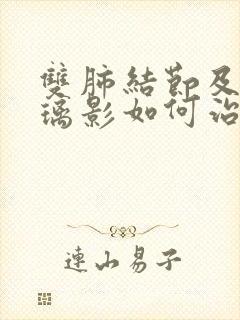 雙肺結節及
璃影如何治
連山易子